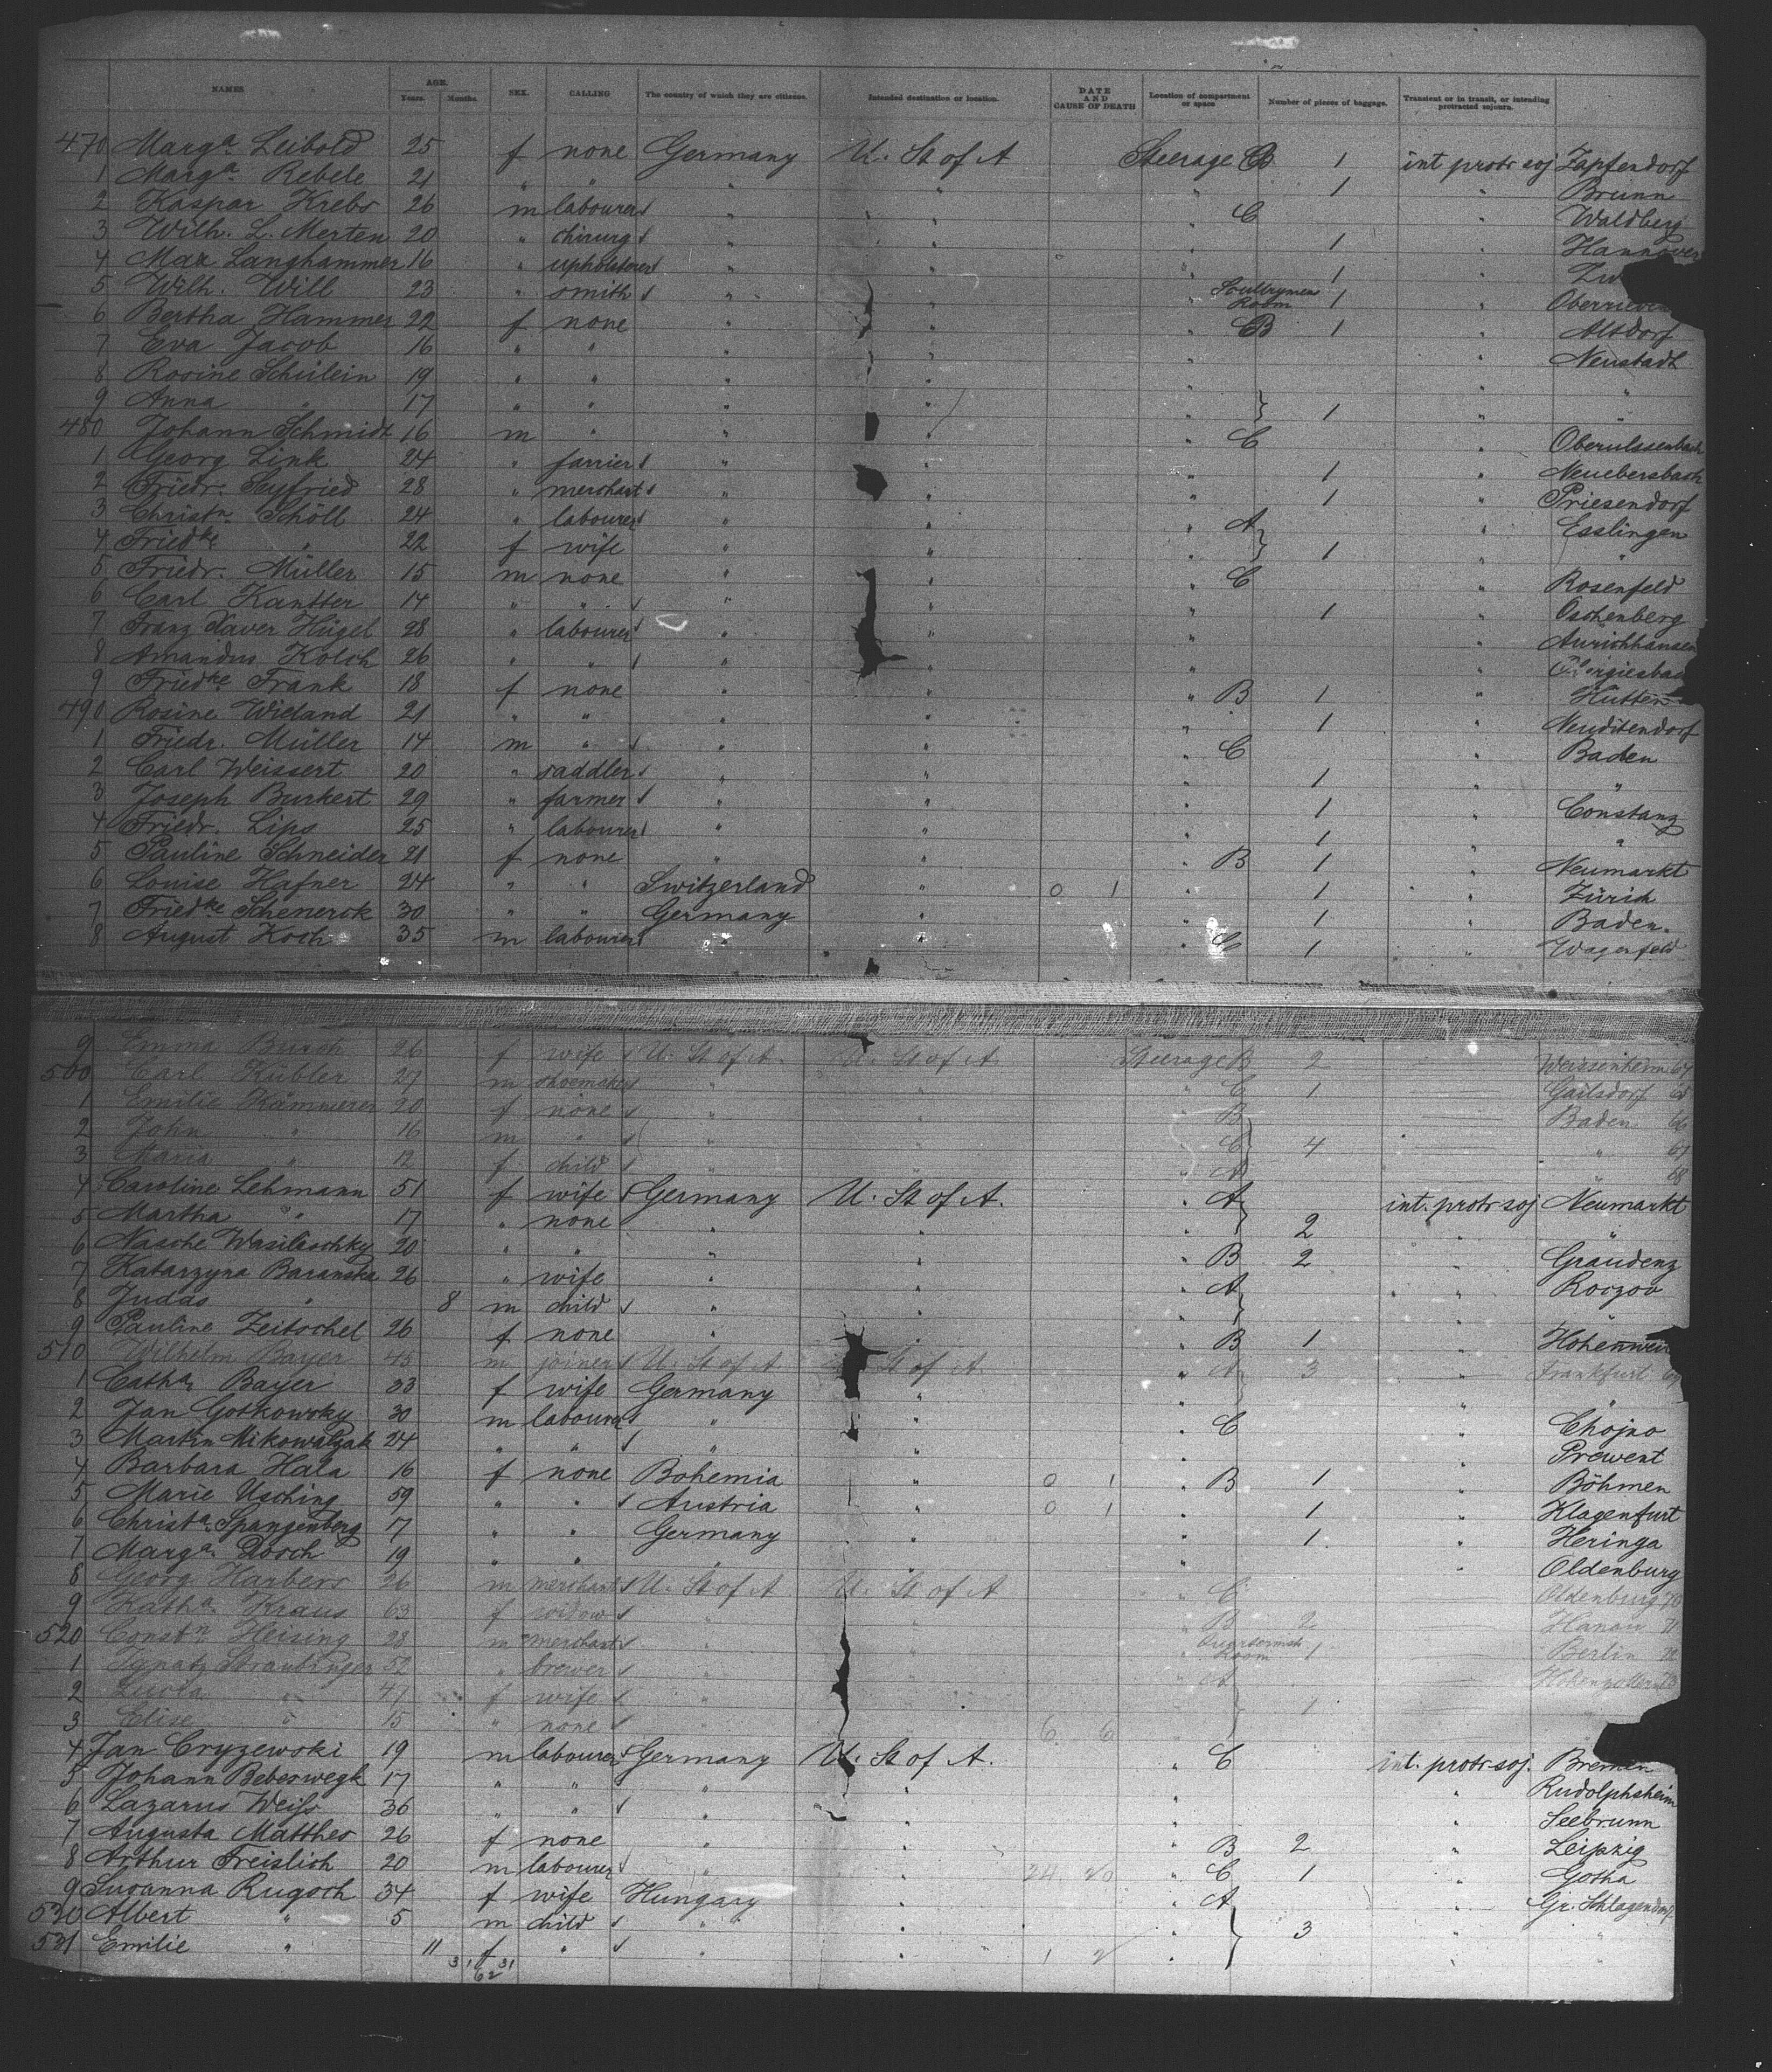 NAMES AGE. Years. Months. SEX. CALLING The country of which they are citizens. Intended destination or location. DATE AND CAUSE OF DEATH Location of compartment or space Number of pieces of baggage. Transient or in transit, or intending protracted sojourn.
470 Marga. Leibold 25 f none Germany U. St of A Steerage B 1 int protr soj Zapfendorf
1 Marga. Rebele 21 " " " " " 1 " Brunn
2 Kaspar Krebs 26 m labourer " " " C " Waldberg
3 Wilh. L. Merten 20 " chirurg " " " 1 " Hannover
4 Max Langhammer 16 " upholsterer " " " 1 "
5 Wilh. Will 23 " smith " " " Room 1 "
6 Bertha Hammer 22 f none " " " B 1 " Altdorf
7 Eva Jacob 16 " " " " " " Neustadt
8 Rosine Schülein 19 " " " " " " "
9 Anna " 17 " " " " " 1 " "
480 Johann Schmidt 16 m " " " " C " Oberulssenbach
1 Georg Link 24 " farrier " " " 1 " Neuebersbach
2 Friedr. Seyfried 28 " merchant " " " 1 " Priesendorf
3 Christn. Schöll 24 " labourer " " " A " Esslingen
4 Friedke " 22 f wife " " " 1 " "
5 Friedr. Müller 15 m none " " " C " Rosenfeld
6 Carl Kantter 14 " " " " " 1 " Oschenberg
7 Franz Xaver Hügel 28 " labourer " " " " Aurichhausen
8 Amandus Kolch 26 " " " " " "
9 Friedke Frank 18 f none " " " B 1 " Hütten
490 Rosine Wieland 21 " " " " " 1 " Neuditendorf
1 Friedr. Müller 14 m " " " " C " Baden
2 Carl Weissert 20 " saddler " " " 1 " "
3 Joseph Burkert 29 " farmer " " " 1 " Constanz
4 Friedr. Lips 25 " labourer " " " 1 " "
5 Pauline Schneider 21 f none " " " B 1 " Neumarkt
6 Louise Hafner 24 " " Switzerland " 0 1 " 1 " Zürich
7 Friedke Schenerok 30 " " Germany " " 1 " Baden.
8 August Koch 35 m labourer " " " C 1 " Wagenfeld
9 Emma Busch 26 f wife U. St of A. U. St of A Steerage B 2 Weissenheim 64
500 Carl Kübler 27 m shoemaker " " " C 1 Gaildorf 65
1 Emilie Kämmerer 20 f none " " " B Baden 66
2 John " 16 m " " " " C 4 " 67
3 Maria " 12 f child " " " A " 68
4 Caroline Lehmann 51 f wife Germany U. St of A. " A int. protr soj Neumarkt
5 Martha " 17 " none " " " 2 " "
6 Nasche Wasilischky 20 " " " " " B 2 " Graudenz
7 Katarzyna Baranska 26 " wife " " " A " Roczoo
8 Judas " 8 m child " " "
9 Pauline Zeitschel 26 f none " " " B 1 "
510 Wilhelm Bayer 45 m joiner U. St of A U. St of A " A 3 " Frankfurt 69
1 Catha. Bayer 33 f wife Germany " " "
2 Jan Gotkowsky 30 m labourer " " " C " Chojno
3 Martin Mikowalzak 24 " " " " " " Prewent
4 Barbara Hala 16 f none Bohemia " 0 1 " B 1 " Böhmen
5 Marie Usching 59 " " Austria " 0 1 " 1 " Klagenfurt
6 Christa. Spangenberg 17 " " Germany " " 1 " Heringa
7 Marga. Dosch 19 " " " " " " Oldenburg
8 Georg Harbers 26 m merchant U. St of A U. St of A " C Oldenburg 70
9 Katha. Kraus 63 f widow " " " B 2 Hanau 71
520 Constn. Heising 28 m merchant " " " Room 1 Berlin 72
1 Ignatz Straubinger 52 " brewer " " " A Hohenzollern 73
2 Lucia " 47 f wife " " 1
3 Elise " 15 " none " 6 6
4 Jan Cryzewski 19 m labourer Germany U. St of A. " C int. protr. soj. Bremen
5 Johann Bebeswegk 17 " " " " " " Rudolphsheim
6 Lazarus Weiss 36 " " " " " " Seebrunn
7 Augusta Matthes 26 f none " " " B 2 " Leipzig
8 Arthur Freislich 20 m labourer " " 24 20 " C 1 " Gotha
9 Susanna Rugoch 34 f wife Hungary " " A " Gr. Schlagendorf
530 Albert " 5 m child " " " 3 " "
531 Emilie " 11 f " " " 1 2 " " "
31 31
62